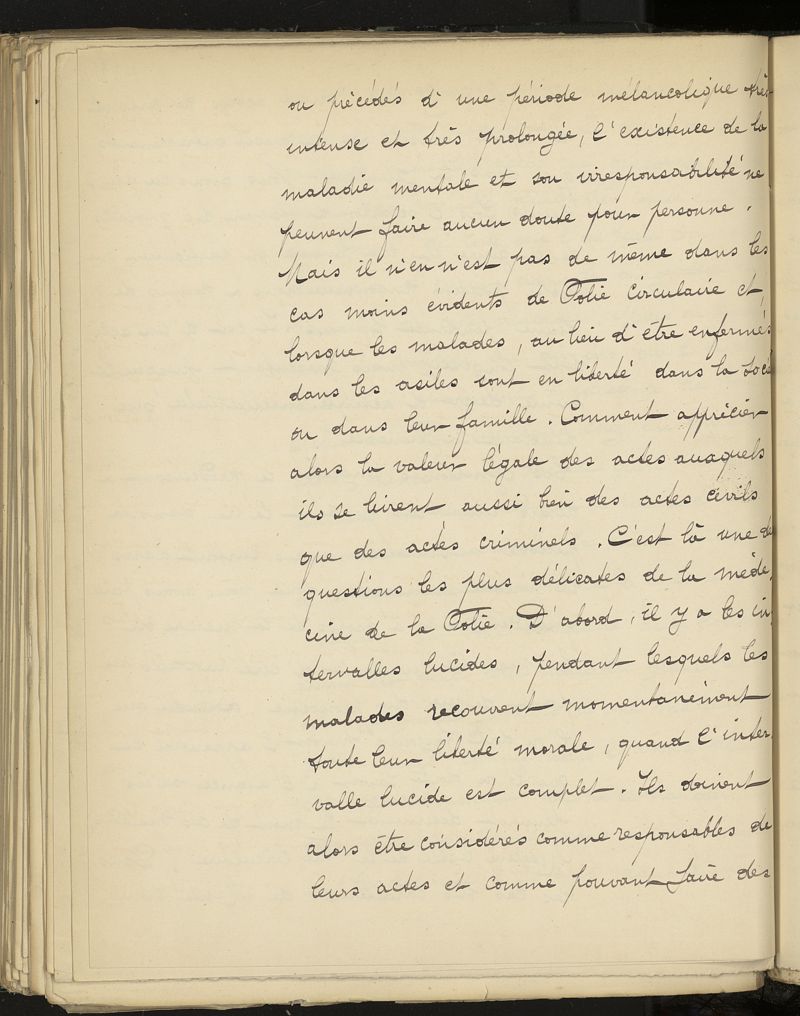 ou précédés d'une période mélancolique très
intense et très prolongée, l'existence de la
maladie mentale et son irresponsabilité ne
peuvent faire aucun doute pour personne.
Mais il n'en n'est pas de même dans les
cas moins évidents de Folie circulaire et,
lorsque les malades, au lieu d'être enfermés
dans les asiles sont en liberté dans la socié
ou dans leur famille. Comment apprécier
alors la valeur légale des actes auxquels
ils se livrent aussi bien des actes civils
que des actes criminels. C'est là une de
questions les plus délicates de la méde
cine de la Folie. D'abord, il y a les in
tervalles lucides, pendant lesquels les
malades recouvent momentanément
toute leur liberté morale, quand l'inter
valle lucide est complet. Ils doivent
alors être considérés comme responsables de
leurs actes et comme pouvant faire des